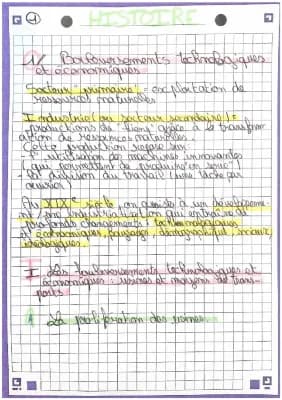 1
HISTOIRE
1/ Bouleversements technologiques
et économiques
Secteur "primaire" = exploitation de
ressources naturelles
Industrie (ou secteur secondaire) =
productions de biens grâce à la transform-
ation de ressources naturelles.
Cette production repose sur:
- l'utilisation des machines innovantes
(qui permettent de produire en série)
- et division du travail (une tâche par
ouvrier)
Au XIXe siècle on assiste à un développeme-
nt / industrialisation qui entraîne de
profonds changements: technologiques
et économiques, paysages, démographie, sociaux,
idéologiques.
I Les bouleversements technologiques et
économiques: usines et moyens de trans-
ports
A La prolifération des usines.